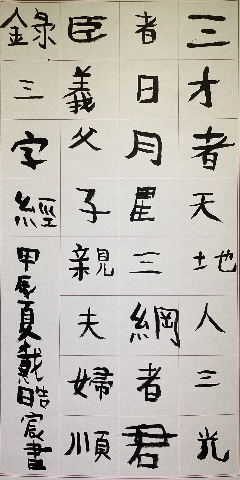 三才者天地人三光
者日月星三綱者君
臣義父子親夫婦順
錄三字經
甲辰夏戴皓宸書